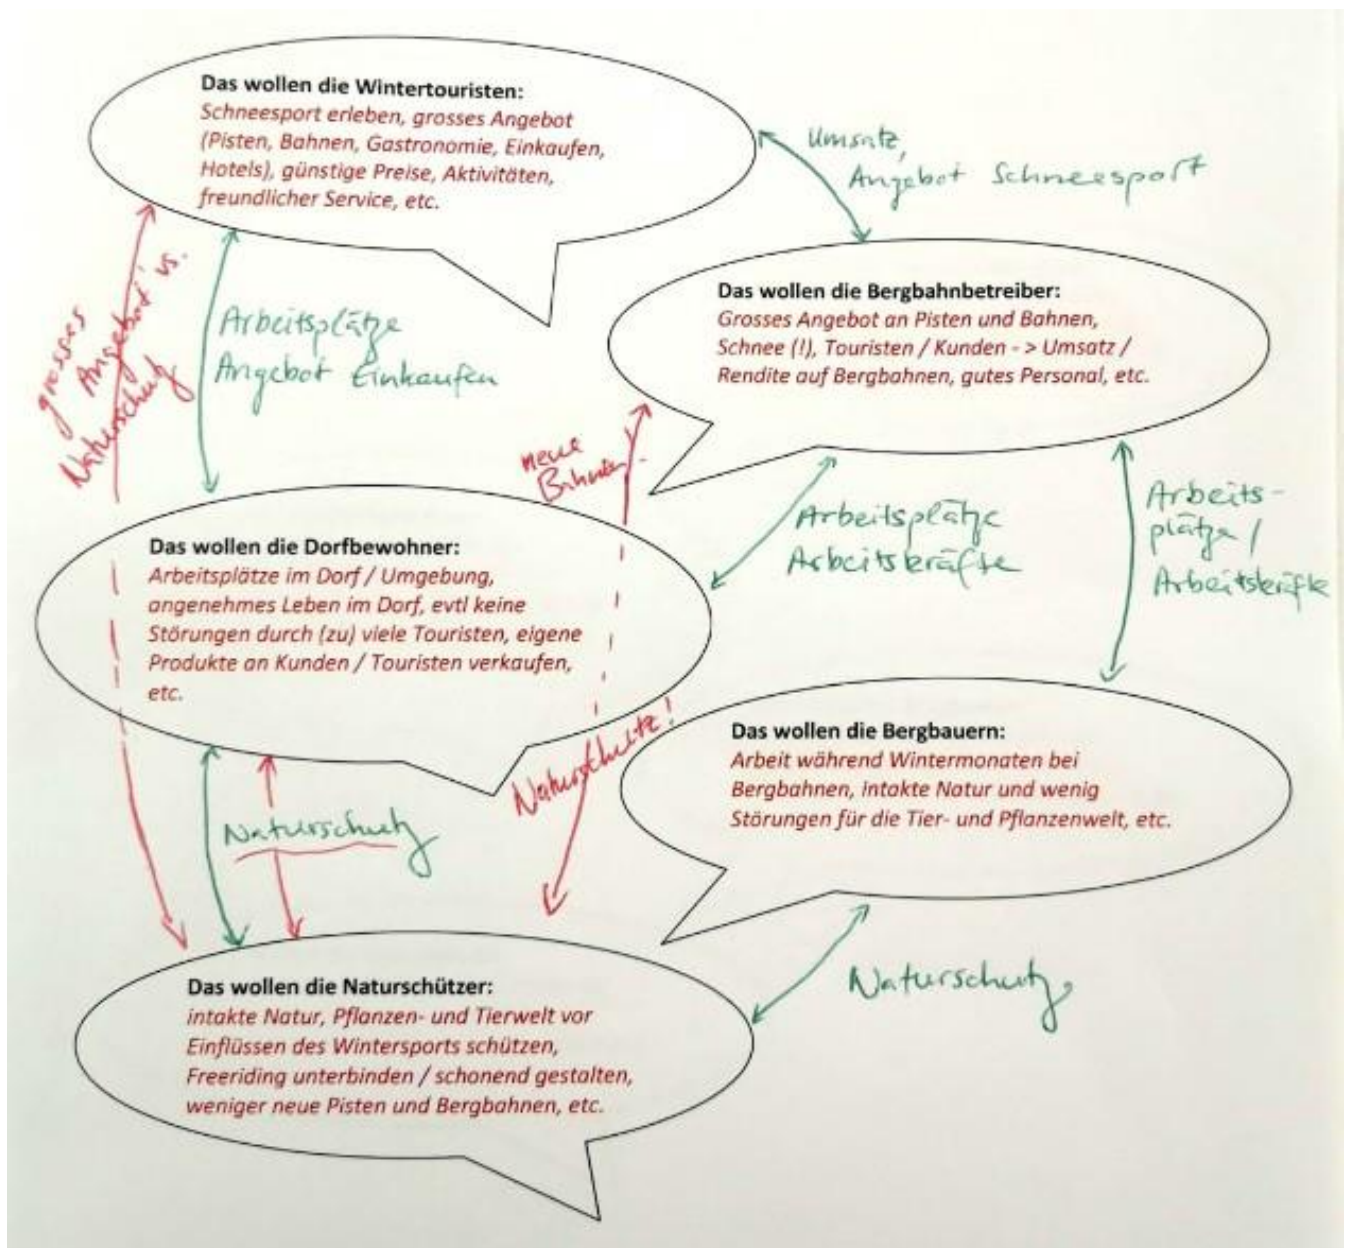 Das wollen die Wintertouristen:
Schneesport erleben, grosses Angebot
(Pisten, Bahnen, Gastronomie, Einkaufen,
Hotels), günstige Preise, Aktivitäten,
freundlicher Service, etc.
Umsatz,
Angebot Schneesport
grosses
Angebot vs.
Naturschutz
Arbeitsplätze
Angebot Einkaufen
Das wollen die Bergbahnbetreiber:
Grosses Angebot an Pisten und Bahnen,
Schnee (!), Touristen / Kunden - > Umsatz /
Rendite auf Bergbahnen, gutes Personal, etc.
neue
Arbeitsplätze
Arbeitskräfte
Arbeits-
plätze /
Arbeitskräfte
Das wollen die Dorfbewohner:
Arbeitsplätze im Dorf / Umgebung,
angenehmes Leben im Dorf, evtl keine
Störungen durch (zu) viele Touristen, eigene
Produkte an Kunden / Touristen verkaufen,
etc.
Naturschutz!
Naturschutz
Das wollen die Bergbauern:
Arbeit während Wintermonaten bei
Bergbahnen, intakte Natur und wenig
Störungen für die Tier- und Pflanzenwelt, etc.
Naturschutz
Das wollen die Naturschützer:
intakte Natur, Pflanzen- und Tierwelt vor
Einflüssen des Wintersports schützen,
Freeriding unterbinden / schonend gestalten,
weniger neue Pisten und Bergbahnen, etc.